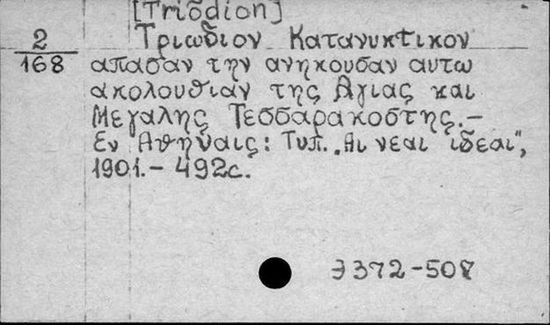 [Triōdion]
2
168
Τριωδιον Κατανυκτικον
απασαν την ανηκουσαν αυτω
ακολουθιαν της Αγιας και
Μεγαλης Τεσσαρακοστης.–
Εν Αθηναις: Τυπ. „Αι νεαι ιδεαι",
1901.– 492с.
Э372-508